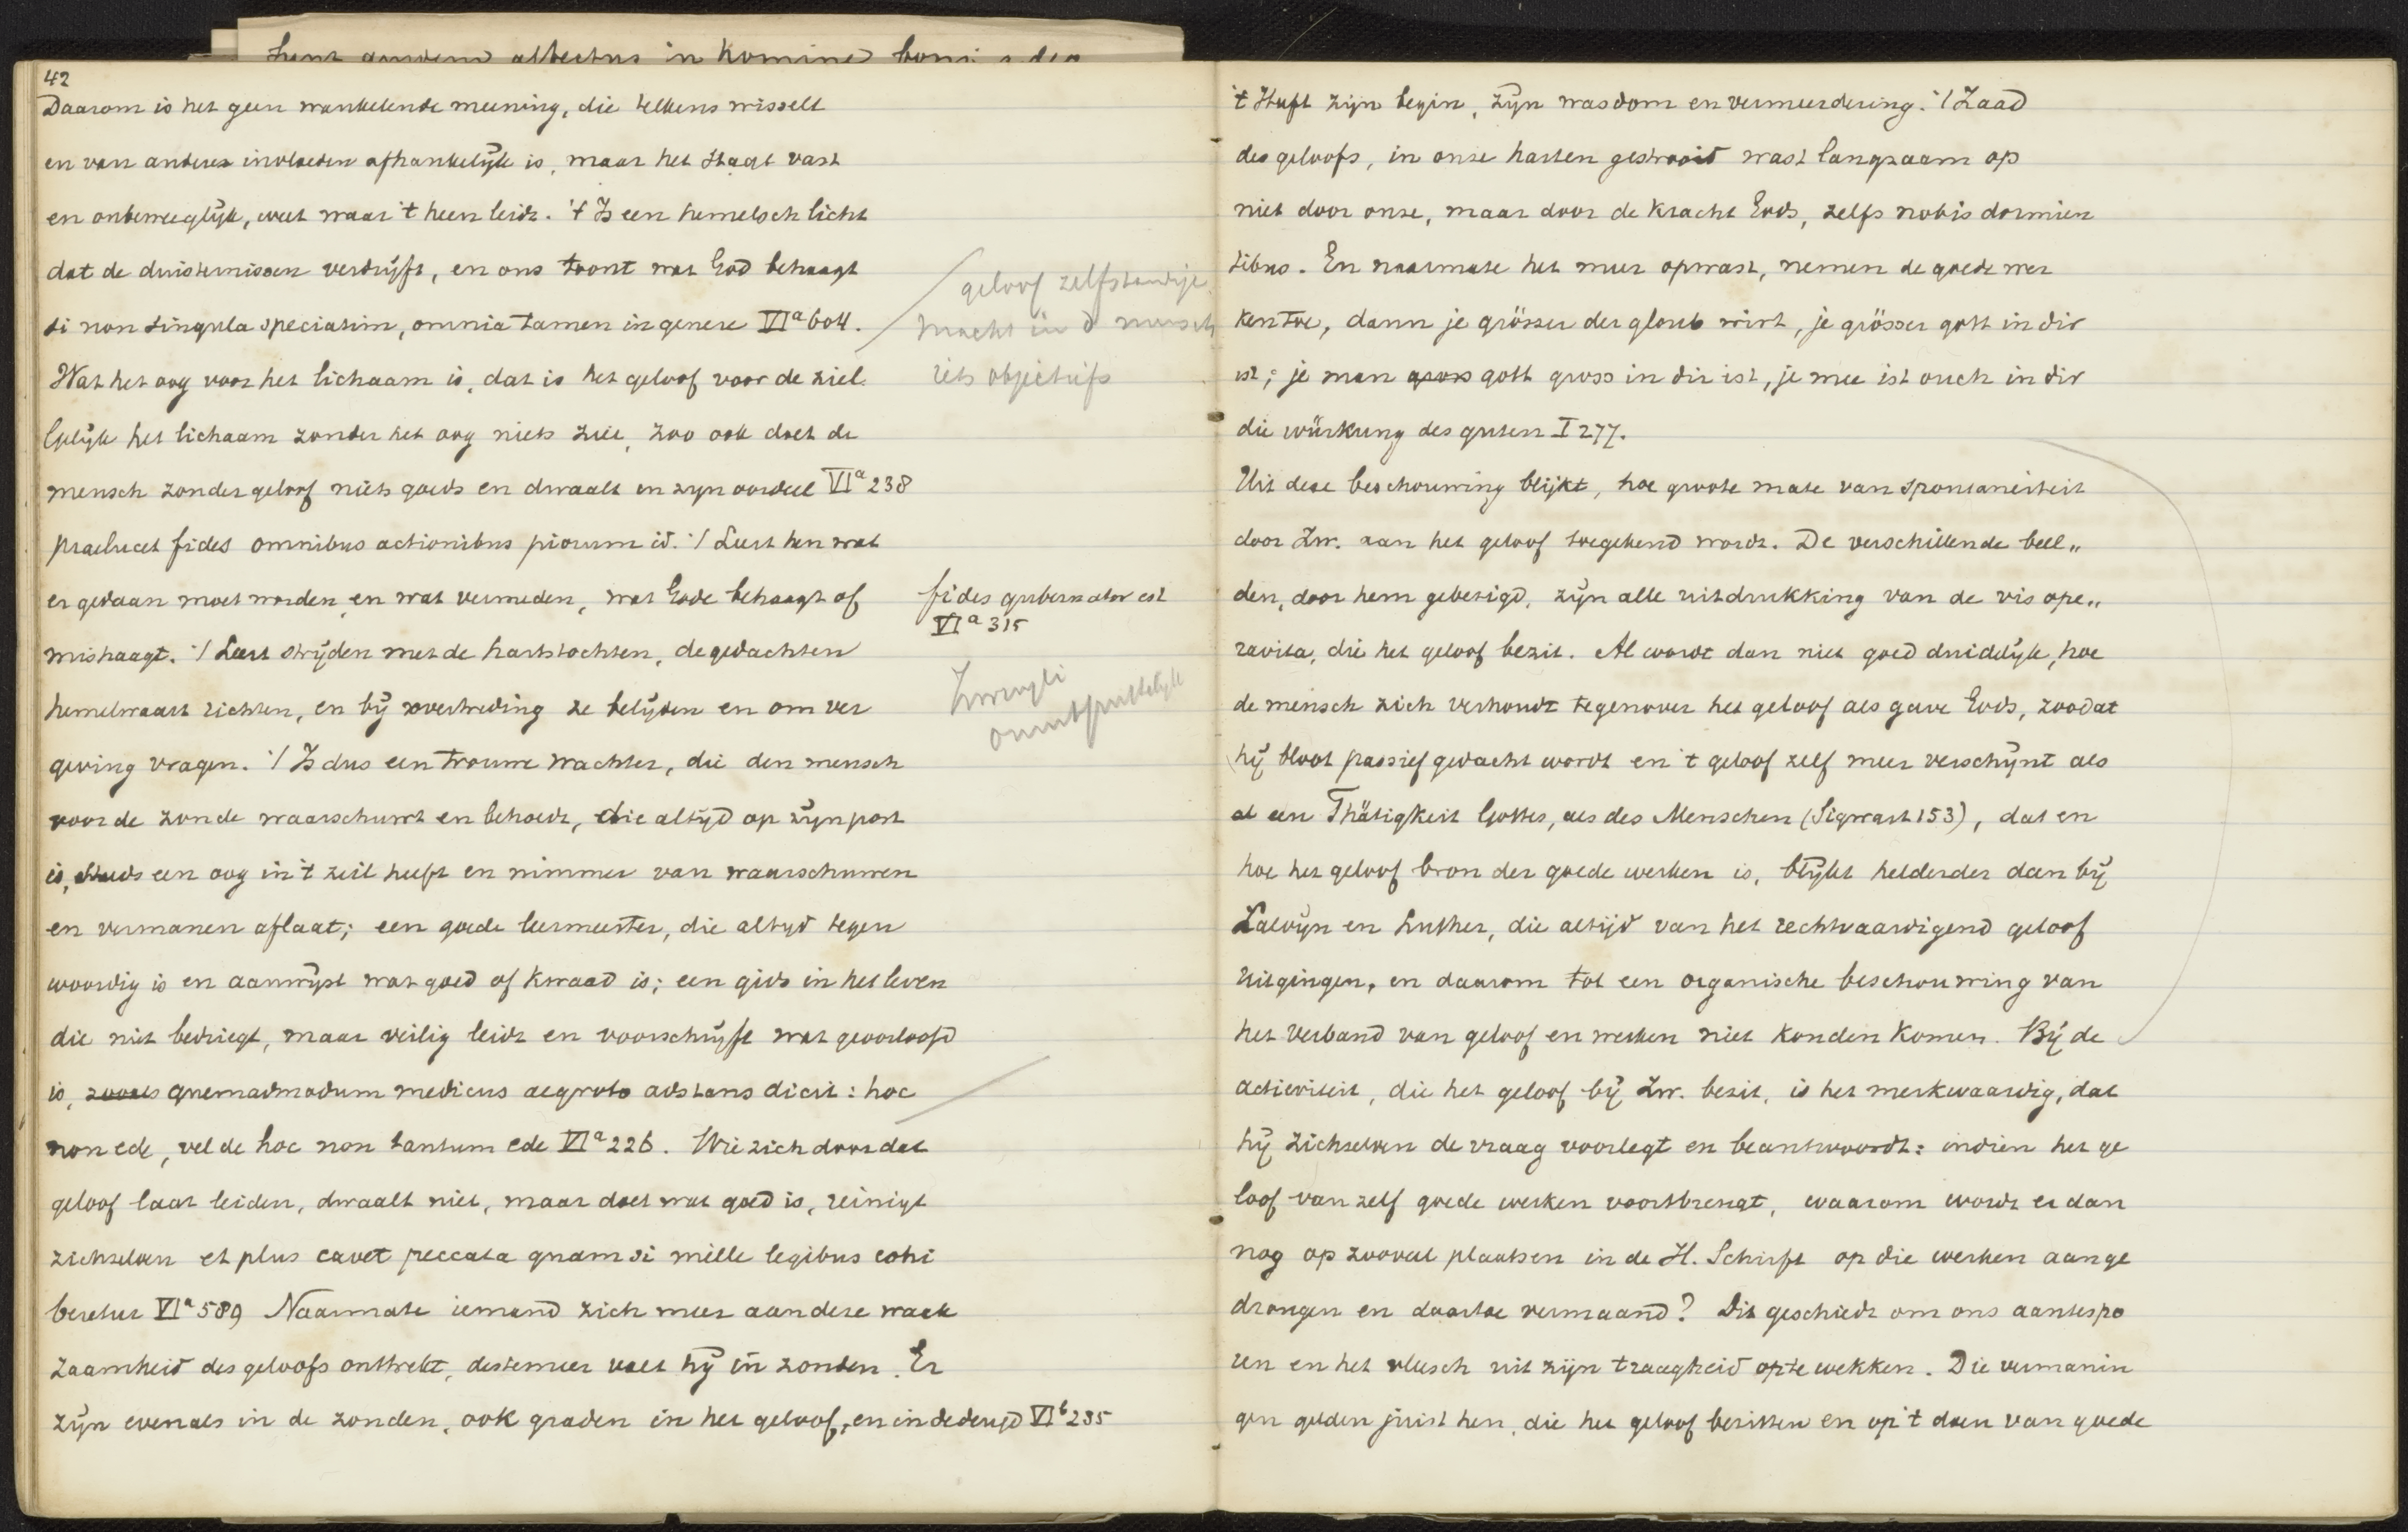 42
Daarom is het geen wankelende meening, die telkens wisselt
en van andere invloeden afhankelijk is, maar het staat vast
en onbeweeglijk, weet waar 't heen leidt. 't Is een hemelsch licht
dat de duisternissen verdrijft, en ons toont wat God behaagt
si non singula speciatim, omnia tamen in genere VIa 604.
Wat het oog voor het lichaam is, dat is het geloof voor de ziel.
Gelijk het lichaam zonder het oog niets ziet, zoo ook doet de
mensch zonder geloof niets goeds en dwaalt in zijn oordeel VIa 238
praelucet fides omnibus actionibus piorum id. :/ Leert hen wat
er gedaan moet worden, en wat vermeden, wat Gode behaagt of
mishaagt. :/ Leert strijden met de hartstochten, de gedachten
hemelwaart richten, en bij overtreding ze belijden en om ver
geving vragen. :/ Is dus een trouwe wachter, die den mensch
voor de zonde waarschuwt en behoedt, die altijd op zijn post
is, steeds een oog in 't zeil heeft en nimmer van waarschuwen
en vermanen aflaat; een goede leermeester, die altijd tegen
woordig is en aanwijst wat goed of kwaad is; een gids in het leven
die niet bedriegt, maar veilig leidt en voorschrijft wat geoorloofd
is, zooals quemadmodum medicus aegroto adstans dicit: hoc
non ede, vel de hoc non tantum ede VIa 226. Wie zich door dat
geloof laat leiden, dwaalt niet, maar doet wat goed is, reinigt
zichzelven et plus cavet peccata quam si mille legibus cohi
beretur VIa 589 Naarmate iemand zich meer aan deze waak
zaamheid des geloofs onttrekt, destemeer valt hij in zonden. Er
zijn evenals in de zonden, ook graden in het geloof, en in de deugd VIb 235
geloof zelfstandige
macht in d mensch
iets objectiefs
fides gubernator est
VIa 315
Zwingli
't Heeft zijn begin, zijn wasdom en vermeerdering. :/ Zaad
des geloofs, in onze harten gestrooid wast langzaam op
niet door onze, maar door de kracht Gods, zelfs nobis dormien
tibus. En naarmate het meer opwast, nemen de goede wer
ken toe, dann je grösser der gloub wirt, je grösser gott in dir
ist; je men gross gott gross in dir ist, je mee ist ouch in dir
die würkung des guten I 277.
Uit deze beschouwing blijkt, hoe groote mate van spontaneiteit
door Zw. aan het geloof toegekend wordt. De verschillende beel„
den, door hem gebezigd, zijn alle uitdrukking van de vis ope„
rativa, die het geloof bezit. Al wordt dan niet goed duidelijk, hoe
de mensch zich verhoudt tegenover het geloof als gave Gods, zoodat
hij bloot passief gedacht wordt en 't geloof zelf meer verschijnt als
al een Thätigkeit Gottes, als des Menschen (Sigwart 153), dat en
hoe het geloof bron der goede werken is, blijkt helderder dan bij
Calvijn en Luther, die altijd van het rechtvaardigend geloof
uitgingen, en daarom tot een organische beschouwing van
het verband van geloof en werken niet konden komen. Bij de
activiteit, die het geloof bij Zw. bezit, is het merkwaardig, dat
hij zichzelven de vraag voorlegt en beantwoordt: indien het ge
loof van zelf goede werken voortbrengt, waarom wordt er dan
nog op zooveel plaatsen in de H. Schrift op die werken aange
drongen en daartoe vermaand? Dit geschiedt om ons aantespo
ren en het vleesch uit zijn traagheid opte wekken. Die vermanin
gen gelden juist hen, die het geloof bezitten en op 't doen van goede